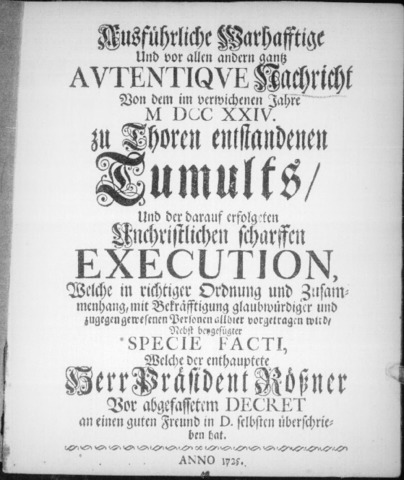 Ausführliche Warhafftige
Und vor allen andern gantz
AVTENTIQVE Nachricht
Von dem im verwichenen Jahre
M DCC XXIV.
zu Thoren entstandenen
Tumults/
Und der darauf erfolgten
Unchristlichen scharffen
EXECUTION,
Welche in richtiger Ordnung und Zusam-
menhang, mit Bekräfftigung glaubwürdiger und
zugegen gewesenen Personen allhier vorgetragen wird/
Nebst beygefügter
SPECIE FACTI,
Welche der enthauptete
Herr Präsident Rößner
Vor abgefassetem DECRET
an einen guten Freund in D. selbsten überschrie-
ben hat.
ANNO 1725.